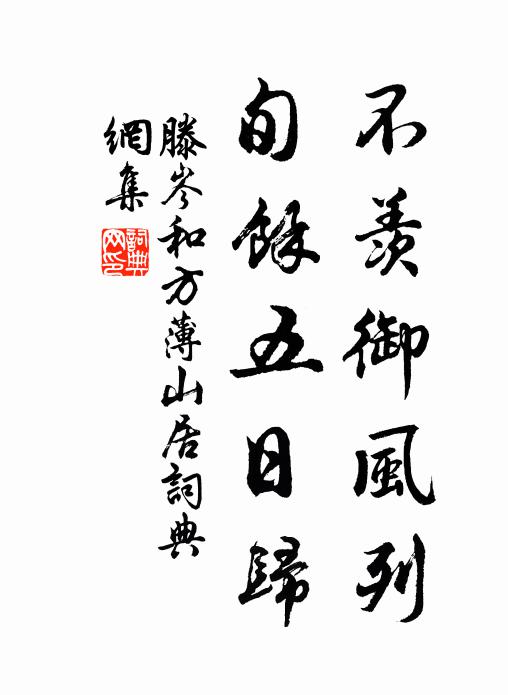 不羨御風列
旬餘五日歸
滕岑和方薄山居詞典
網集
詞典網印